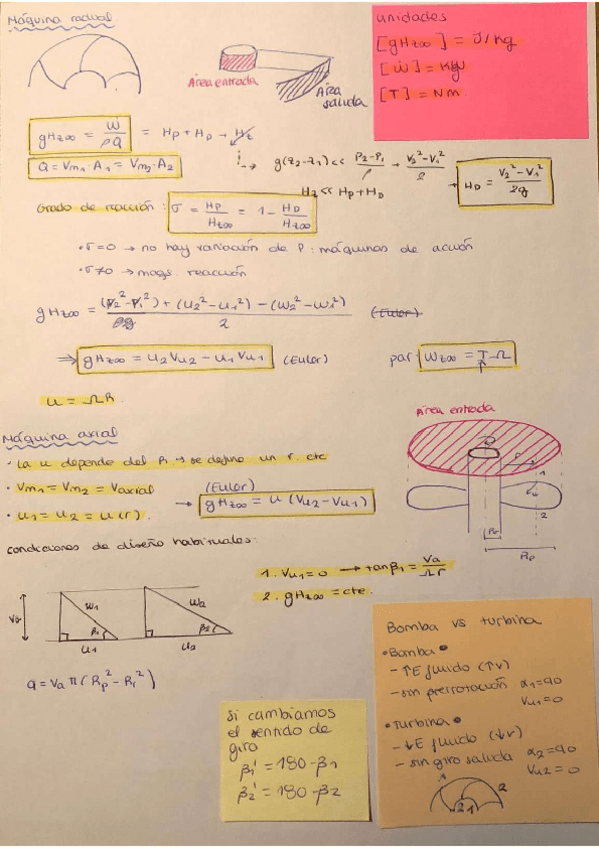 Máquina radial
Área entrada
Área salida
unidades
[gHt∞] = J/kg
[Ẇ] = kgW
[T] = Nm
gHt∞ = Ẇ/ρQ = Hp + HD + Hz
Q = Vm1 · A1 = Vm2 · A2
g(z2-z1) << (P2-P1)/ρ + (V2²-V1²)/2
Hz << Hp + HD
→ HD = (V2² - V1²)/2g
Grado de reacción: σ = Hp/Ht∞ = 1 - HD/Ht∞
• σ=0 → no hay variación de P: máquinas de acción
• σ≠0 → maqs. reacción
gHt∞ = ((V2²-V1²) + (u2²-u1²) - (w2²-w1²))/2 (Euler)
⇒ gHt∞ = u2Vu2 - u1Vu1 (Euler)
par: Wt∞ = T · Ω
u = ΩR
Máquina axial
• La u depende del R → se define un r. cte
• Vm1 = Vm2 = Vaxial
• u1 = u2 = u(r).
(Euler)
→ gHt∞ = u (Vu2 - Vu1)
Área entrada
r
1
2
Rr
Rp
condiciones de diseño habituales:
1. Vu1 = 0 → tanβ1 = Va/Ωr
2. gHt∞ = cte.
Va
w1
β1
u1
w2
β2
u2
Q = Va π (Rp² - Rr²)
Si cambiamos
el sentido de
giro
β1' = 180 - β1
β2' = 180 - β2
Bomba vs turbina
• Bomba •
- ↑E fluido (↑v)
- sin prerrotación α1=90
Vu1=0
• Turbina •
- ↓E fluido (↓v)
- sin giro salida α2=90
Vu2 = 0
1
2
2 1